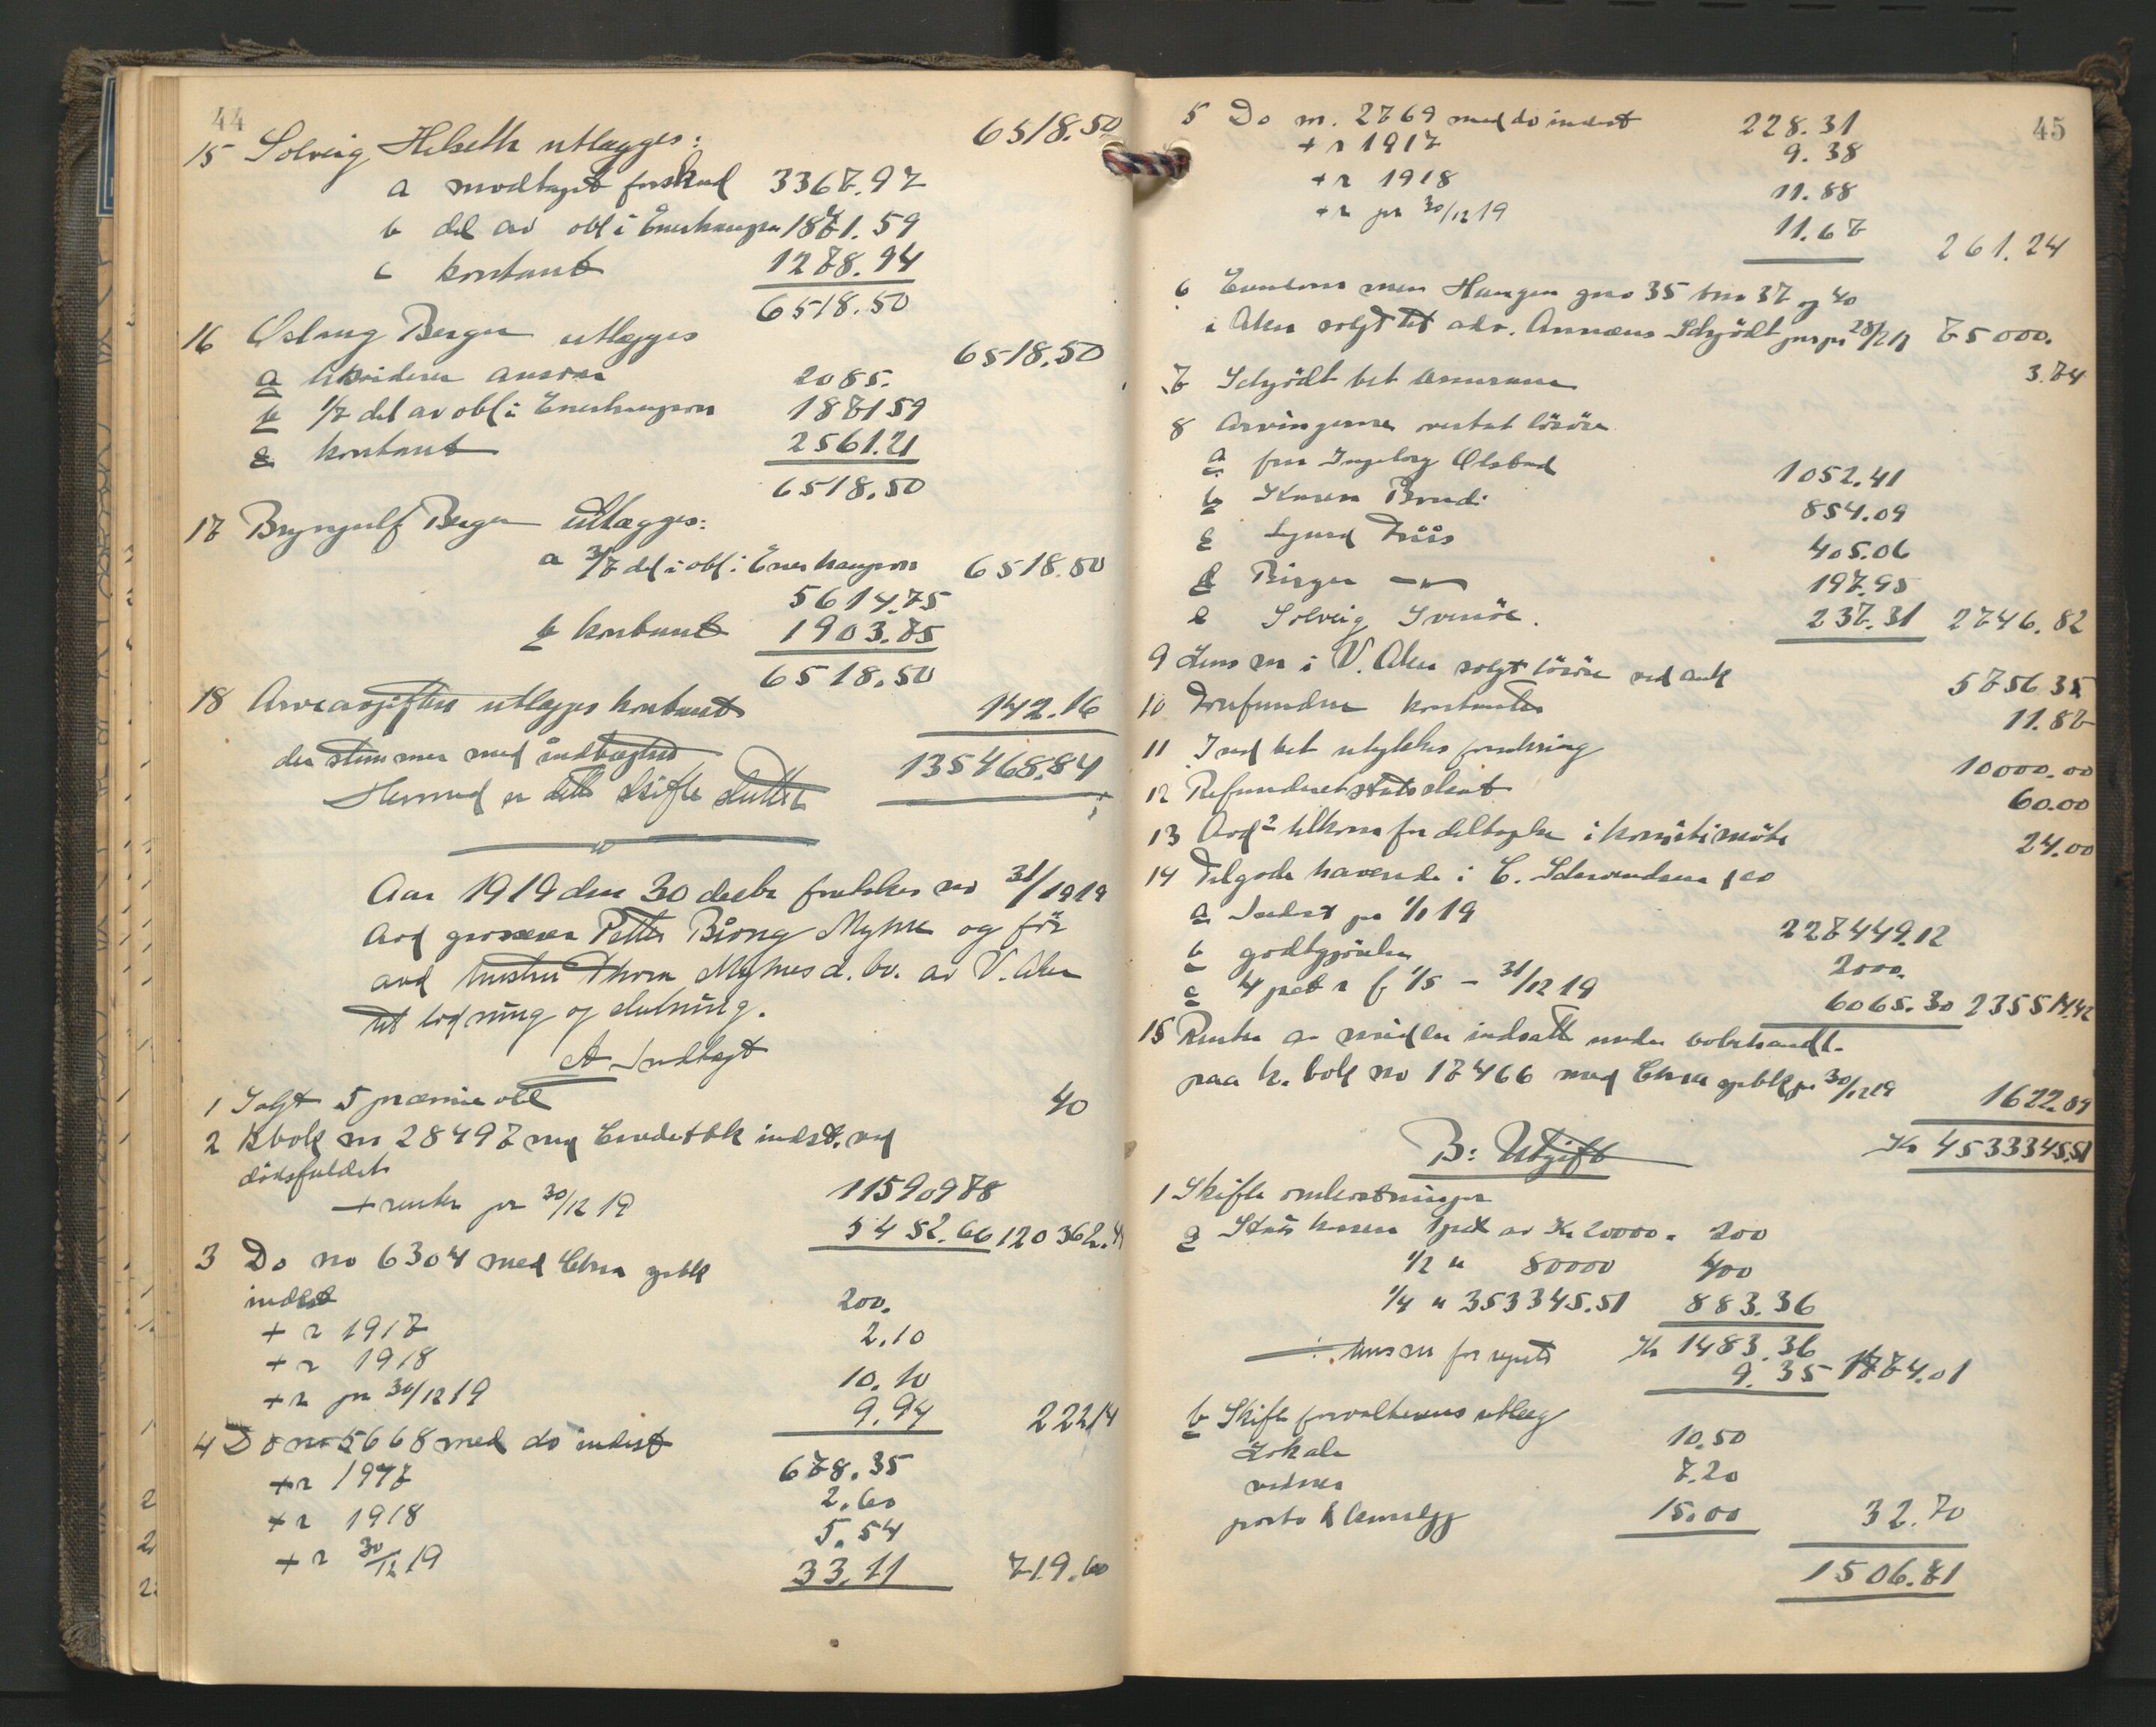 44
15 Solveig Helseth utlægges: 6518.50
a modtaget forskud 3367.97
b del av obl i Enerhaugen 1871.59
c kontant 1278.94
6518.50
16 Aslaug Berger utlægges 6518.50
a 2085.
b 1/7 del av obl i Enerhaugen 187159
c kontant 2561.21
6518.50
17 Bryngulf Berger utlægges:
a 3/7 del i obl i Enerhaugen 6518.50
5614.75
b kontant 1903.75
6518.50
18 Arveavgiften utlægges kontant 142.16
der stemmer med indtægten 135468.84
Hermed er dette skifte sluttet
Aar 1919 den 30 decbr foretokes no 31/1919
avd grosserer Petter Biong Myhre og før
avd hustru Thora Myhres d. bo. av V. Aker
til lodning og slutning.
A Indtægt
1 Solgt 5 præmie obl 40
2 Kbok no 28497 med Creditbk indst. ved
dödsfaldet 11590978
+ renter pr 30/12 19 5452.66 120362.44
3 Do no 6304 med Chra gsbk
indst 200.
+ r 1917 2.10
+ r 1918 10.10
+ r pr 30/12 19 9.94 222.14
4 Do no 5668 med do indst 678.35
+ r 1917 2.60
+ r 1918 5.54
+ r 30/12 19 33.11 719.60
45
5 Do nr. 2769 med do indest 228.31
+ r 1917 9.38
+ r 1918 11.88
+ r pr 30/12 19 11.67 261.24
6 Haugen gno 35 bno 37 og 40
i Aker solgt til adv. Annæus Schjödt 75000.
7 Schjödt bet assurance 3.74
8 Arvingerne overtat lösöre
a fru Ingeborg 1052.41
b Karen 854.09
c Sigurd Friis 405.06
d Birger —"— 197.95
e Solveig 237.31 2746.82
9 Lensm i V. Aker solgt lösöre ved auk 5756.35
10 Forefundne kontanter 11.87
11 Ind bet ulykkes forsikring 10000.00
12 Refunderet statsskat 60.00
13 Avd² tilkom for deltagelse i komitemöte 24.00
14 Tilgode havende i C. Schwendsen & co
a Indest pr 1/1 19 227449.12
b godtgjörelse 2000.
c 4 pct r f 1/5 - 31/12 19 6065.30 235514.42
15 Renter av midler indsatt under bobehandl.
paa k. bok no 17466 med Chra gsbk pr 30/12 19 1622.09
Kr 4533345.51
B: Utgift
1 Skifte omkostninger
a Stats kassen 1 pct av Kr 20000 " 200
1/2 " 80000 400
1/4 " 353345.51 883.36
Kr 1483.36
÷ 9.35 1474.01
b Skifte forvalterens utlæg
Lokale 10.50
vidner 7.20
porto & 15.00 32.70
1506.71